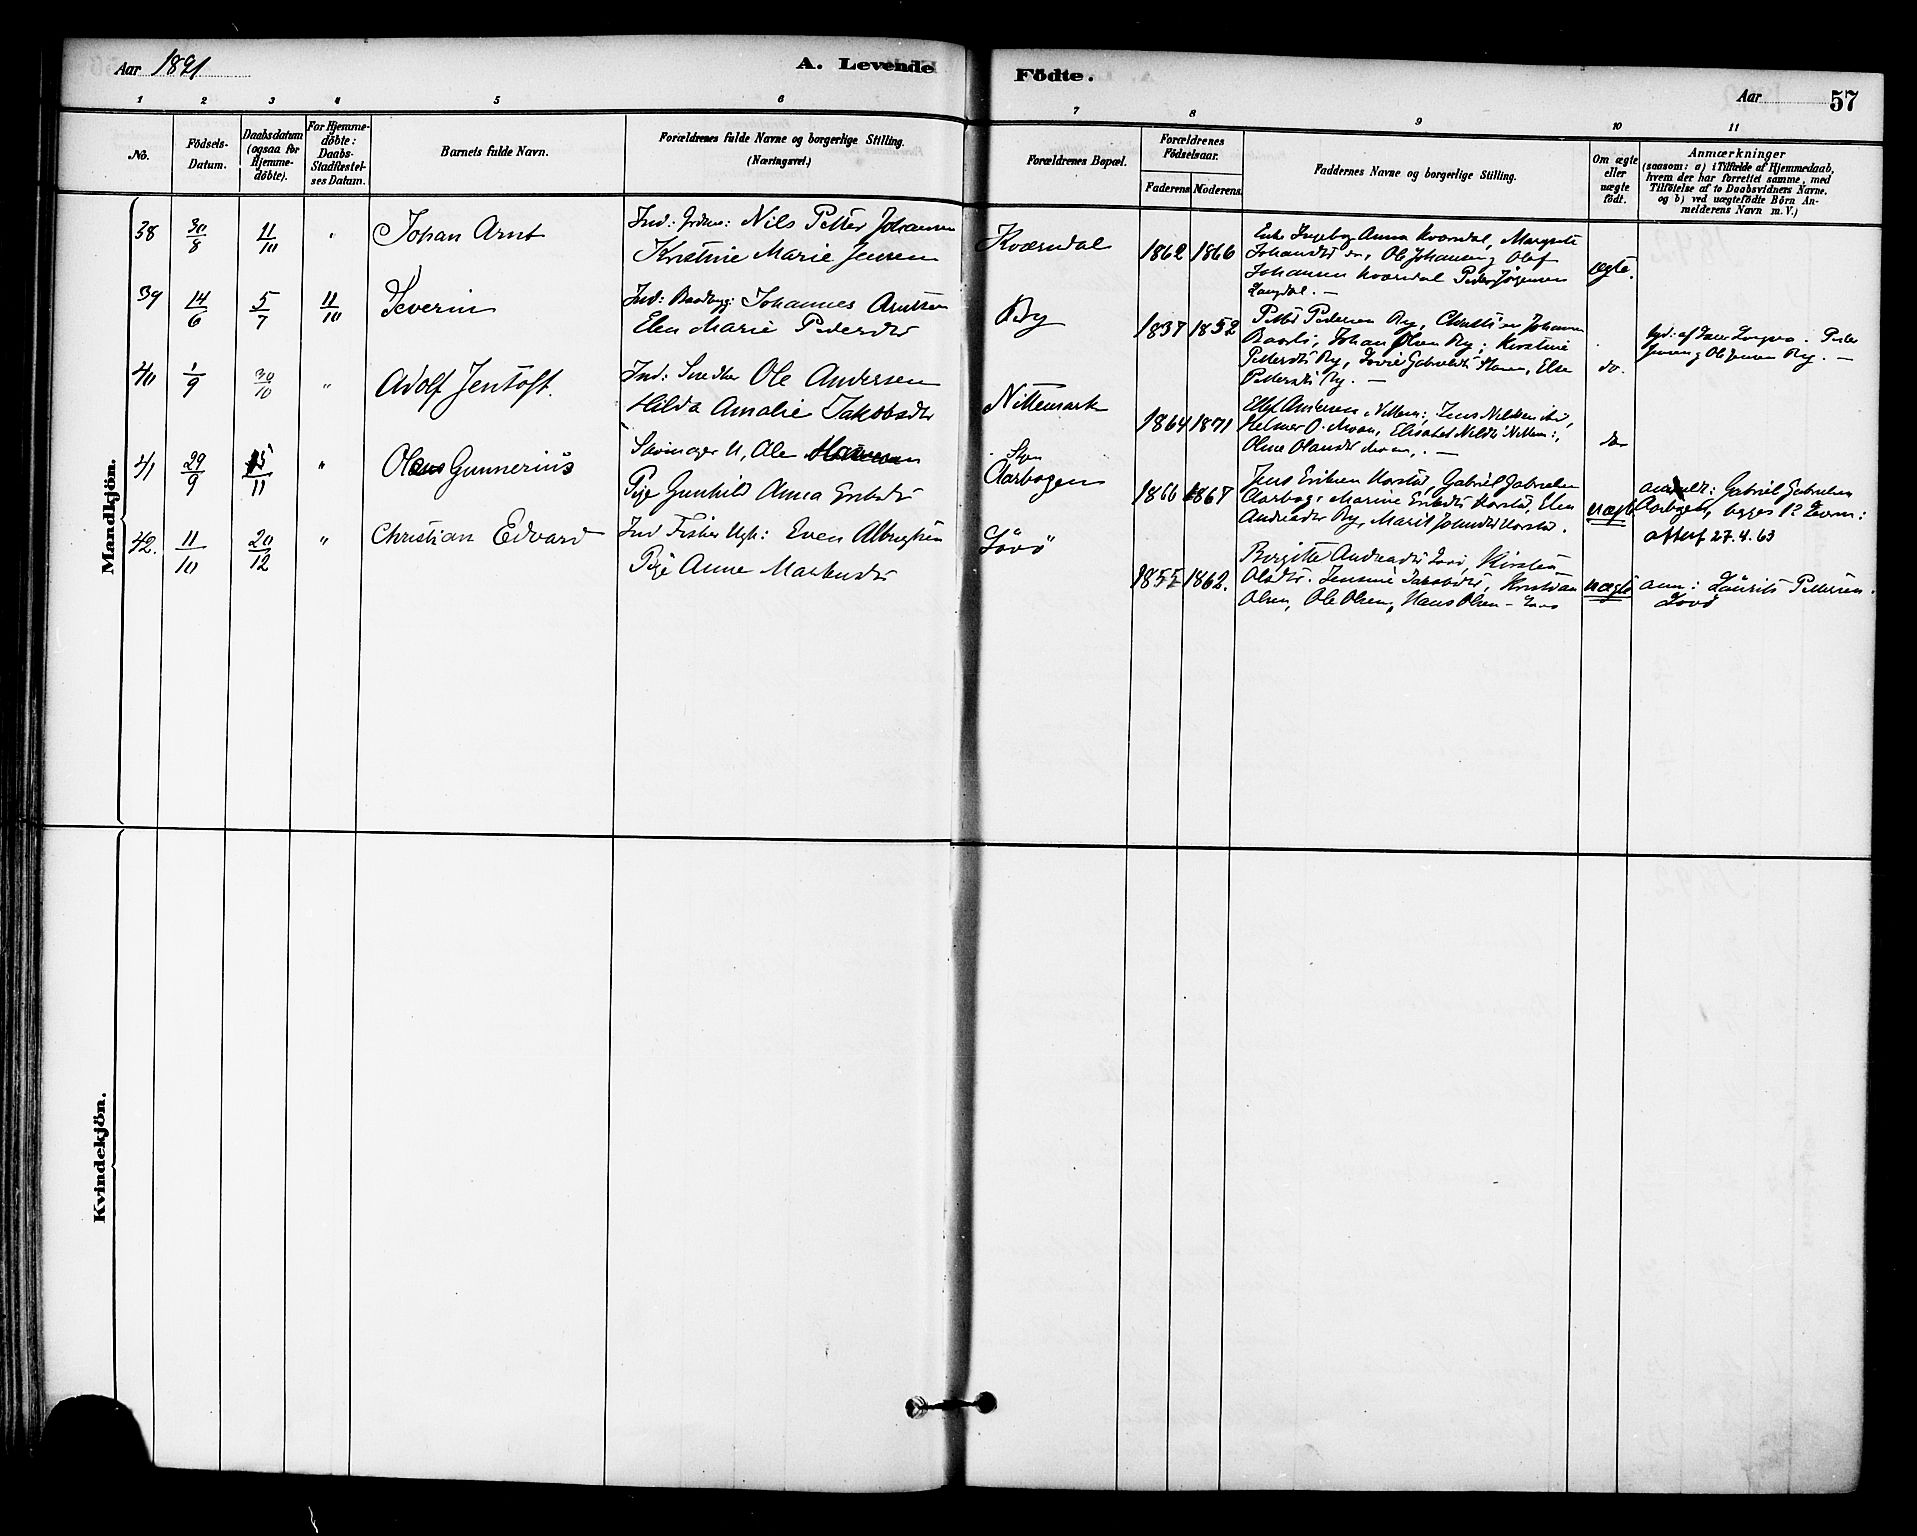 Aar 1891
A. Levende
Födte.
Aar
57
1 2 3 4 5 6 7 8 9 10 11
No.
Födsels-
Datum.
Daabsdatum
(ogsaa for
Hjemme-
döbte).
For Hjemme-
döbte:
Daabs-
Stadfæstel-
ses Datum.
Barnets fulde Navn.
Forældrenes fulde Navne og borgerlige Stilling.
(Næringsvei.)
Forældrenes Bopæl.
Forældrenes
Födselsaar.
Faderens.
Moderens.
Faddernes Navne og borgerlige Stilling.
Om ægte
eller
uægte
födt.
Anmærkninger
(saasom: a) i Tilfælde af Hjemmedaab,
hvem der har forrettet samme, med
Tilföielse af to Daabsvidners Navne,
og b) ved uægtefödte Börn An-
melderens Navn m. V.)
Mandkjön.
38 30/8 11/10 Johan Arnt
Ind: Nils Petter Johansen
Kristine Marie Jensen
Kværndal
1862 1866
Enke Ingeborg Anna Kværndal, Margrete
Johansdtr do, Ole Johansen, Olaf
Johansen Kværndal Peder Jørgensen
Langdal. —
ægte.
39 14/6 5/7 11/10 Severin
Ind: Baadbyg: Johannes Arntsen
Elen Marie Pedersdtr
By
1837 1852
Petter Pedersen By, Johansen
Johan Olsen By, Kirstine
Pettersdtr By, Gabrielsdtr Else
Pettersdtr By. —
do.
Peder
Jensen, Ole Jensen By. —
40 1/9 30/10 " Adolf Jentoft.
Ind: Snedker Ole Andersen
Hilda Amalie Jakobsdtr
Nittemark
1864 1871
Ellef Andersen, Jens Nilssen
Helmer O. Moan, Elisabet Nilsdtr Nittem:,
Oline Olausdtr Moan, . —
do
41 29/9 15/11 " Olaus Gunnerius
U, Ole Hansen
Pige Gunhild Anna Eriksdtr
Aarbogen
1866 1867
Jens Eriksen Horstad, Gabriel Gabrielsen
Aarbog, Marine Eriksdtr Horstad, Elen
Andreasdtr By, Marit Johnsdtr Horstad.
uægte
anmeldt: Gabriel Gabrielsen
Aarbogen, begges 1ste Leierm:
attest 27.4.63
42. 11/10 20/12 " Christian Edvard
Ind Fisker Ugk: Even Albrigtsen
Pige Anne Markusdtr
Lövö
1855 1862.
Birgitte Andreasdtr Lövö, Kirsten
Olsdtr. Jensine Jakobsdtr, Kristian
Olsen, Ole Olsen, Hans Olsen – Lövö
uægte
anm: Laurits Pettersen.
Lövö
Kvindekjön.